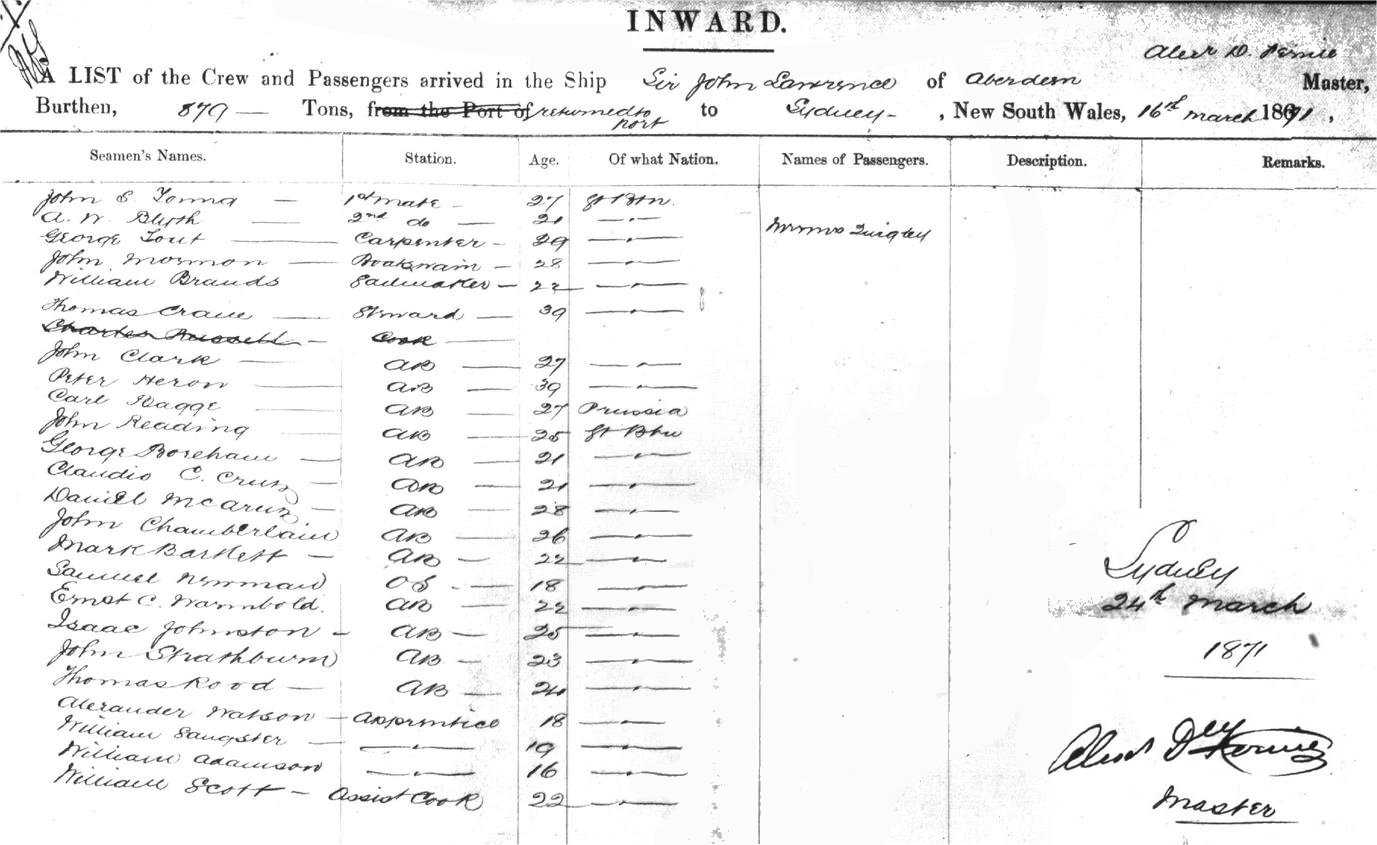 INWARD.
Alexr D. Kernie
A LIST of the Crew and Passengers arrived in the Ship Sir John Lawrence of Aberdeen Master,
Burthen, 879 — Tons, from the Port of returned to port to Sydney - , New South Wales, 16th March 1871 ,
Seamen's Names. Station. Age. Of what Nation. Names of Passengers. Description. Remarks.
John S Young — 1st mate - 27 Gt Btn.
A. W. Blyth — 2nd do — 21 — " —
George Tout — Carpenter - 29 — " — Quigley
John Mormon — Boatswain — 28 — " —
William Brands Sailmaker — 22 — " —
Thomas Crane — Steward — 39 — " —
Charles Russell - Cook —
John Clark — AB — 27 — " —
Peter Heron — AB — 39 — " —
Carl Bagge — AB — 27 Prussia
John Reading — AB — 25 Gt Btn
George Boreham — AB — 21 — " —
Claudio C. — AB — 21 — " —
Daniel — AB — 28 — " —
John Chamberlain AB — 26 — " —
Mark Bartlett — AB — 22 — " —
Samuel Newman OS — 18 — " —
Ernst C. Warmbold. AB — 22 — " —
Isaac Johnston - AB — 25 — " —
John Strathburn AB - 23 — " —
Thomas Rood — AB — 24 — " —
Alexander Watson - Apprentice 18 — " —
William Sangster — — " — 19 — " —
William Adamson — " — 16 — " —
William Scott - Assist Cook 22 — " —
Sydney
24th March
1871
Alexr D Kernie
Master